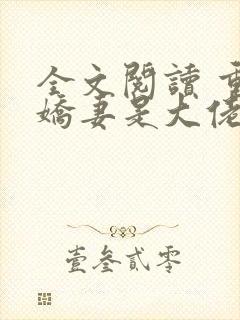 全文閱讀
嬌妻是大佬
壹叁貳零